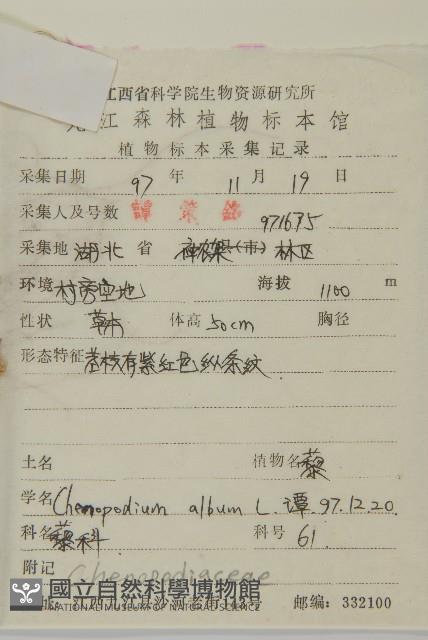 江西省科学院生物资源研究所
九江森林植物标本馆
植物标本采集记录
采集日期 97 年 11 月 19 日
采集人及号数 譚策銘 971675
采集地 湖北 省 神农架 县(市) 林区
环境 村旁空地 海拔 1100 m
性状 草本 体高 50cm 胸径
形态特征 茎枝有紫红色纵条纹.
土名 植物名 藜
学名 Chenopodium album L. 谭.97.12.20.
科名 藜科 科号 61.
附记 Chenopodiaceae
國立自然科學博物館
NATIONAL MUSEUM OF NATURAL SCIENCE
江西九江县沙河老街 邮编: 332100